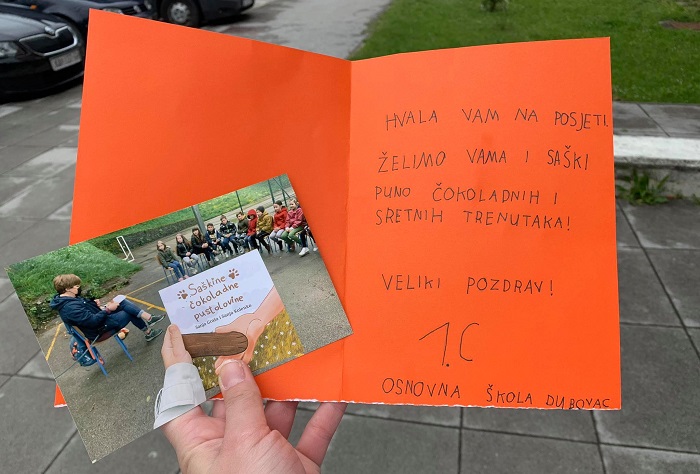 HVALA VAM NA POSJETI.
ŽELIMO VAMA I SAŠKI
PUNO ČOKOLADNIH I
SRETNIH TRENUTAKA!
VELIKI POZDRAV!
1.C
OSNOVNA ŠKOLA DUBOVAC
Saškine
čokoladne
pustolovine